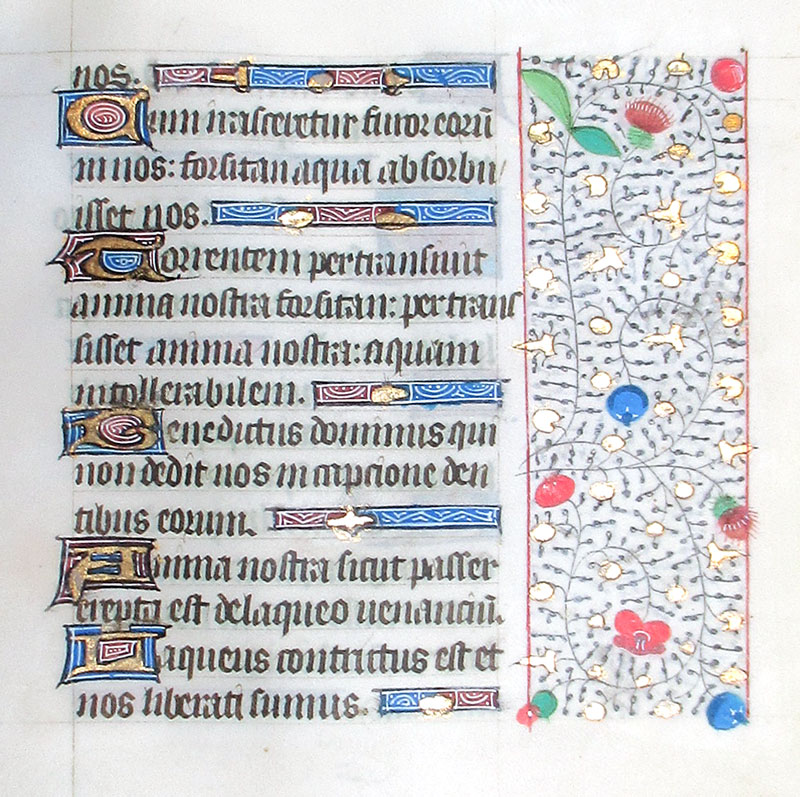 nos.
Cum irasceretur furor eorū
in nos: forsitan aqua absorbu
isset nos.
Torrentem pertransiuit
anima nostra forsitan: pertrans
sisset anima nostra: aquam
intollerabilem.
Benedictus dominus qui
non dedit nos in capcione den
tibus eorum.
Anima nostra sicut passer
erepta est de laqueo uenanciū.
Laqueus contrictus est et
nos liberati sumus.